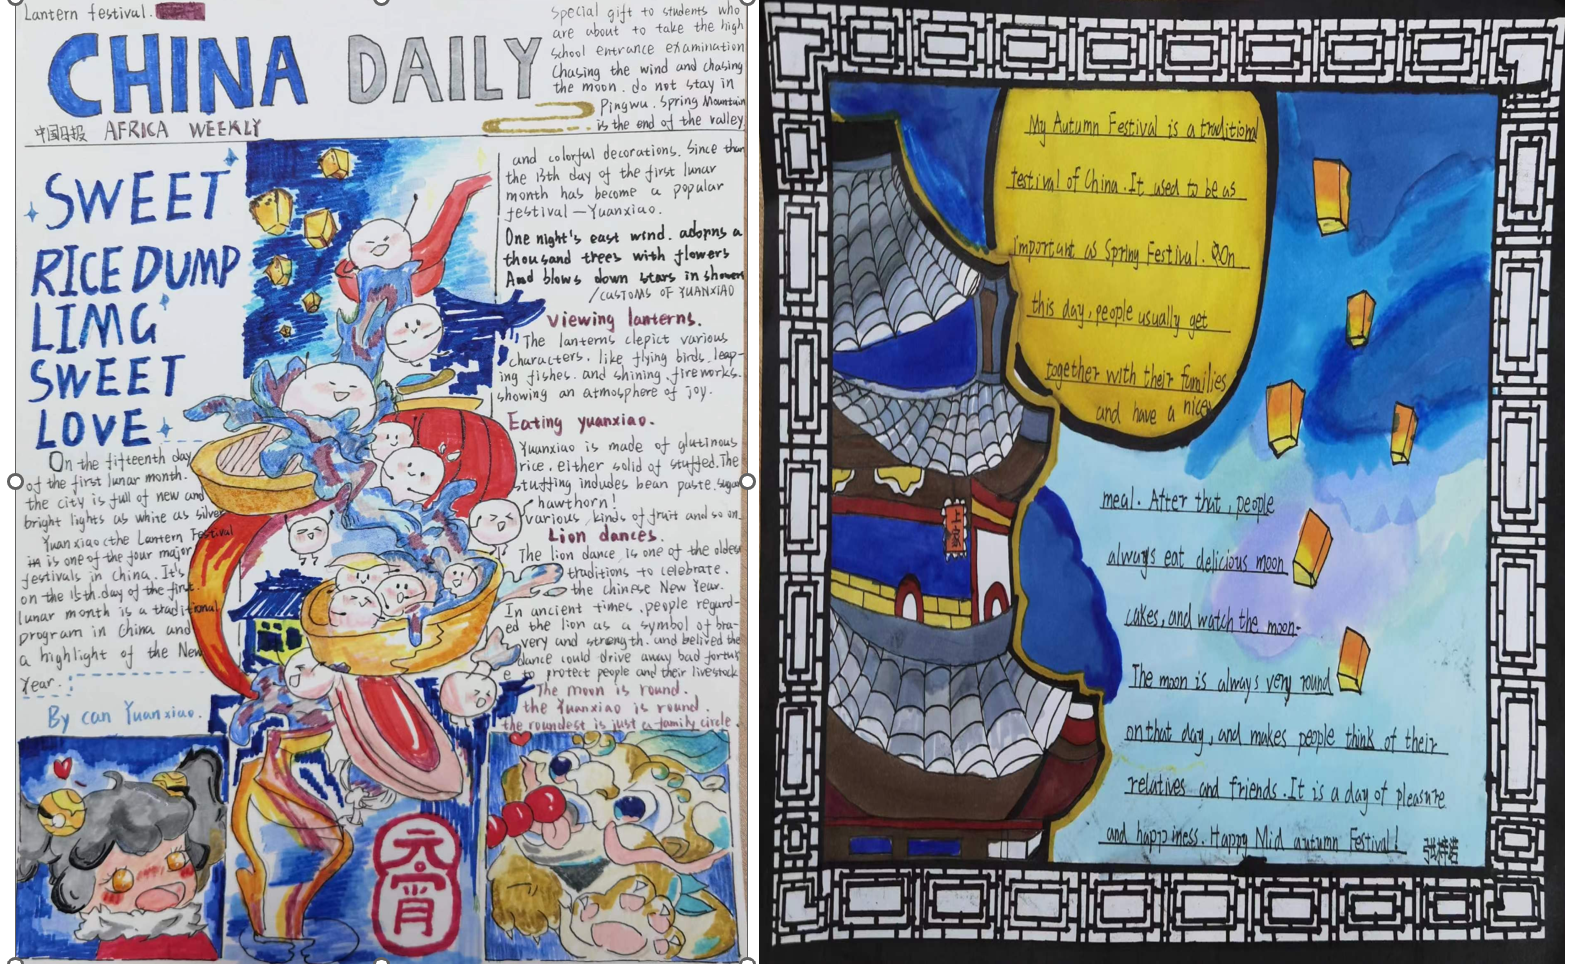 Lantern festival.
CHINA DAILY
中国日报 AFRICA WEEKLY
Special gift to students who
are about to take the high
school entrance examination
Chasing the wind and chasing
the moon. do not stay in
Pingwu. Spring Mountain
is the end of the valley
SWEET
RICE DUMP
LIMG
SWEET
LOVE
On the fifteenth day
of the first lunar month.
the city is full of new and
bright lights as whine as silver
Yuanxiao (the Lantern Festival
is one of the four major
festivals in china. It's
on the 15th.day of the first.
lunar month is a traditional
program in China and
a highlight of the New
Year.
By can Yuanxiao.
and colorful decorations. Since than
the 13th day of the first lunar
month has become a popular
festival—Yuanxiao.
One night's east wind. adopns a
thousand trees with flowers
And blows down stars in showers
/CUSTOMS OF YUANXIAO
Viewing lanterns.
The lanterns clepict various
characters. like flying birds. leap-
ing fishes. and shining.fireworks.
showing an atmosphere of joy.
Eating yuanxiao.
Yuanxiao is made of glutinous
rice. either solid of stuffed.The
stuffing indudes bean paste.sugar
hawthorn!
various kinds of fruit and so on.
Lion dances.
The lion dance is one of the oldest
traditions to celebrate.
the chinese New Year.
In ancient times.people regard-
ed the lion as a symbol of bra-
very and strength. and belived the
dance could drive away bad fortun
e to protect people and their livestock
The moon is round.
the Yuanxiao is round.
the roundest is just a family circle.
元宵
My Autumn Festival is a traditional
festival of China. It used to be as
important as Spring Festival. On
this day, people usually get
together with their families
and have a nice
meal. After that, people
always eat delicious moon
cakes, and watch the moon.
The moon is always very round
on that day, and makes people think of their
relatives and friends. It is a day of pleasure
and happiness. Happy Mid autumn Festival!